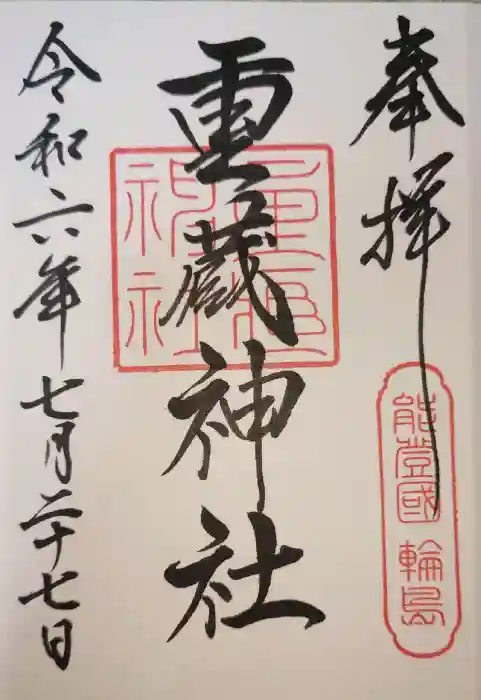 奉拝
能登國 輪島
重蔵神社
重蔵
神社
令和六年七月二十七日